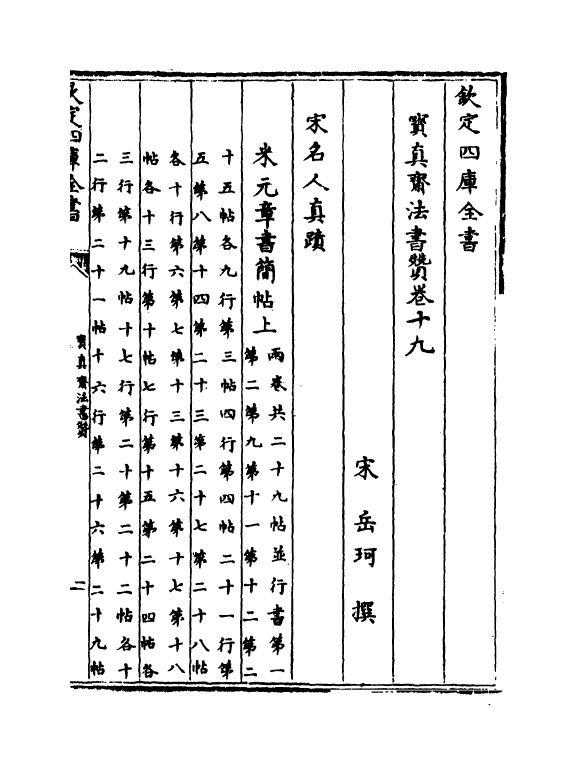 欽定四庫全書
寳真齋法書贊卷十九
宋 岳珂 撰
宋名人真蹟
米元章書簡帖上
兩卷共二十九帖並行書第一
第二第九第十一第十二第二
十五帖各九行第三帖四行第四帖二十一行第
五第八第十四第二十三第二十七第二十八帖
各十行第六第七第十三第十六第十七第十八
帖各十三行第十帖七行第十五第二十四帖各
三行第十九帖十七行第二十第二十二帖各十
二行第二十一帖十六行第二十六第二十九帖
欽定四庫全書
寳真齋法書贊